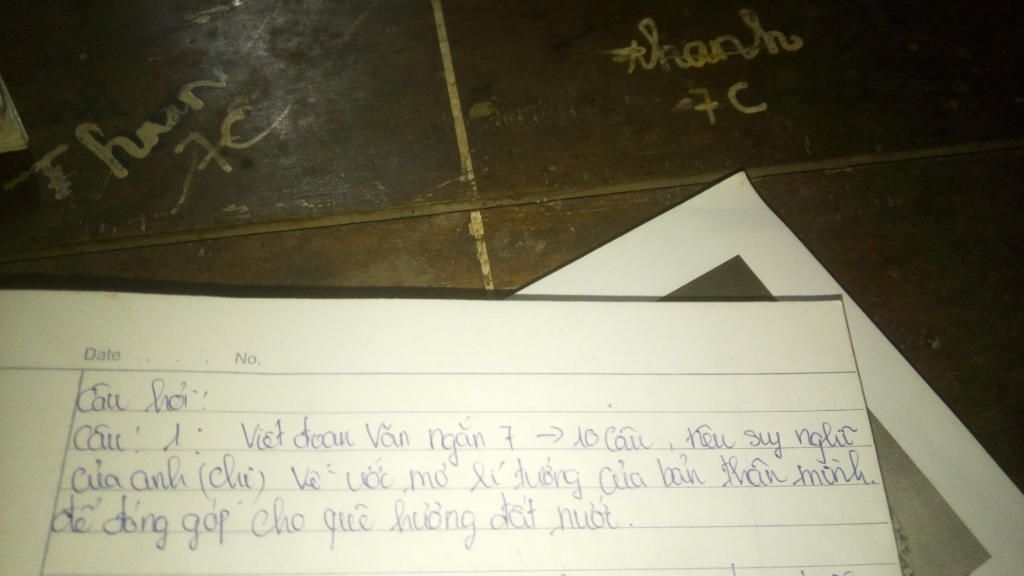 Thanh
7C
Thanh
7C
Date . . . No.
Câu hỏi:
Câu: 1: Viết đoạn Văn ngắn 7 → 10 Câu, nêu suy nghĩ
của anh (chị) về ước mơ lí tưởng của bản thân mình.
để đóng góp cho quê hương đất nước.